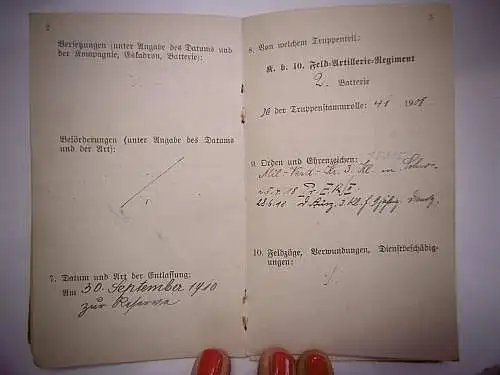 2
Versetzungen (unter Angabe des Datums und
der Kompagnie, Eskadron, Batterie):
Beförderungen (unter Angabe des Datums
und der Art):
7. Datum und Art der Entlassung:
Am 30. September 1910
zur Reserve
3
8. Von welchem Truppenteil:
K. b. 10. Feld-Artillerie-Regiment
2. Batterie
№ der Truppenstammrolle: 41 1908.
9. Orden und Ehrenzeichen:
Mil-Verd-Kr. 3. Kl. m. Schw.
10. Feldzüge, Verwundungen, Dienstbeschädig-
ungen: